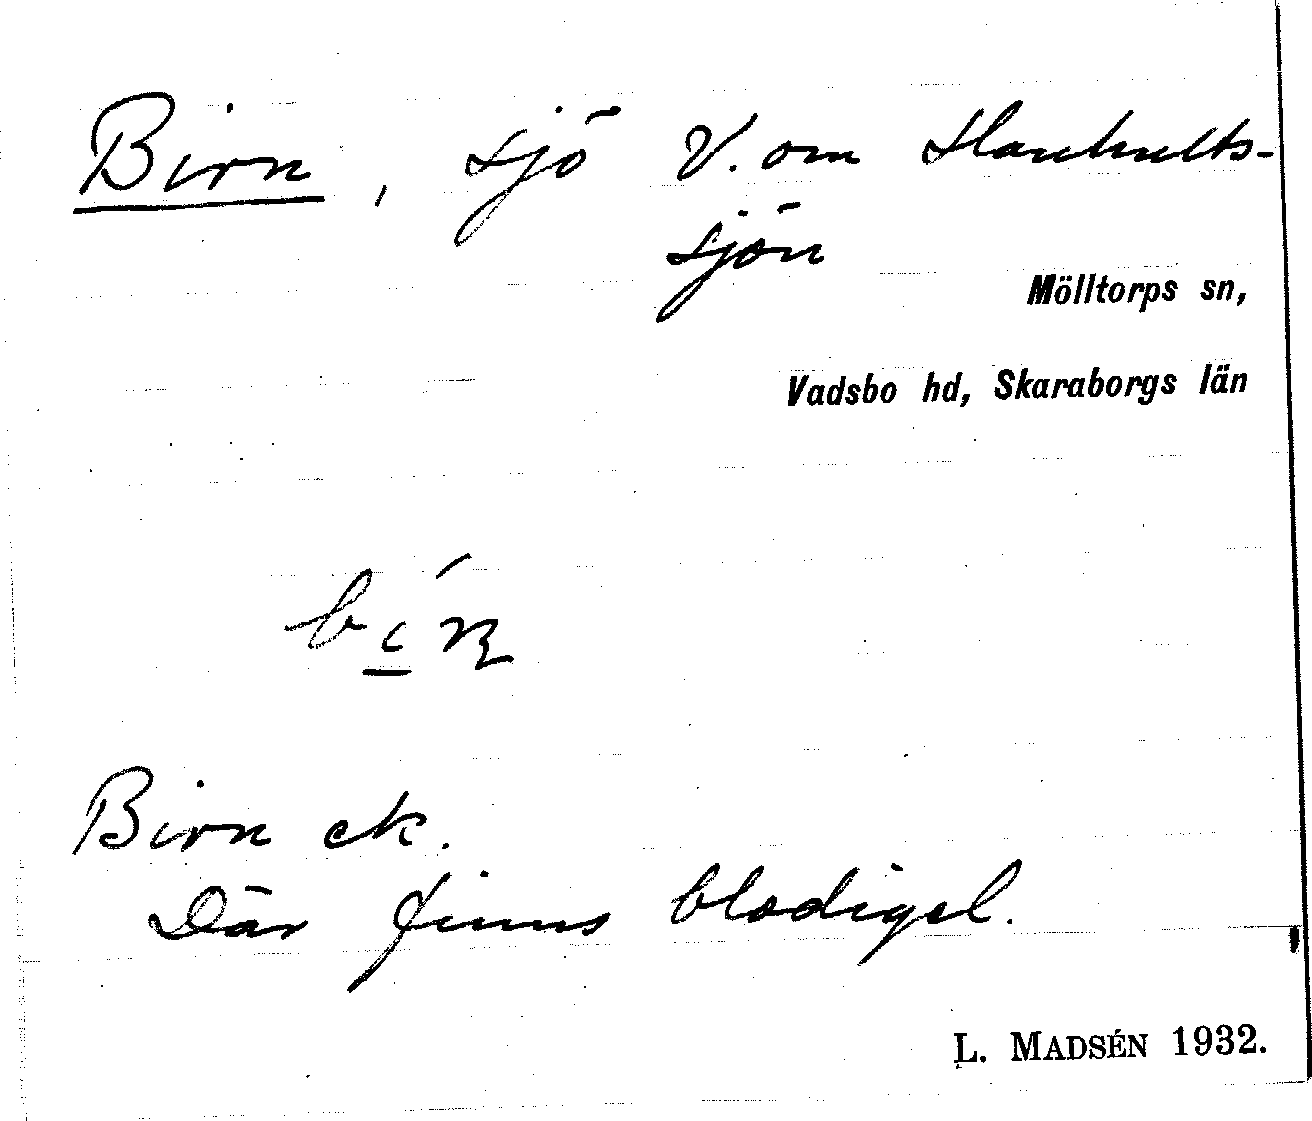 Birn, sjö V. om Havhults-
sjön
Mölltorps sn,
Vadsbo hd, Skaraborgs län
Birn ek.
Där finns blodigel.
L. MADSÉN 1932.